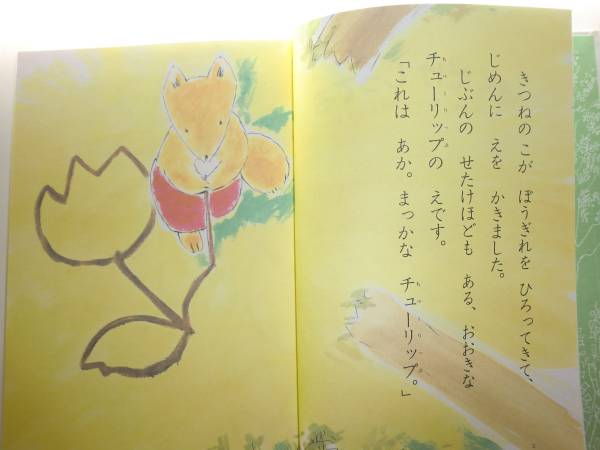 きつねの こが ぼうぎれを ひろってきて、
じめんに えを かきました。
じぶんの せたけほども ある、おおきな
チューリップの えです。
「これは あか。まっかな チューリップ。」